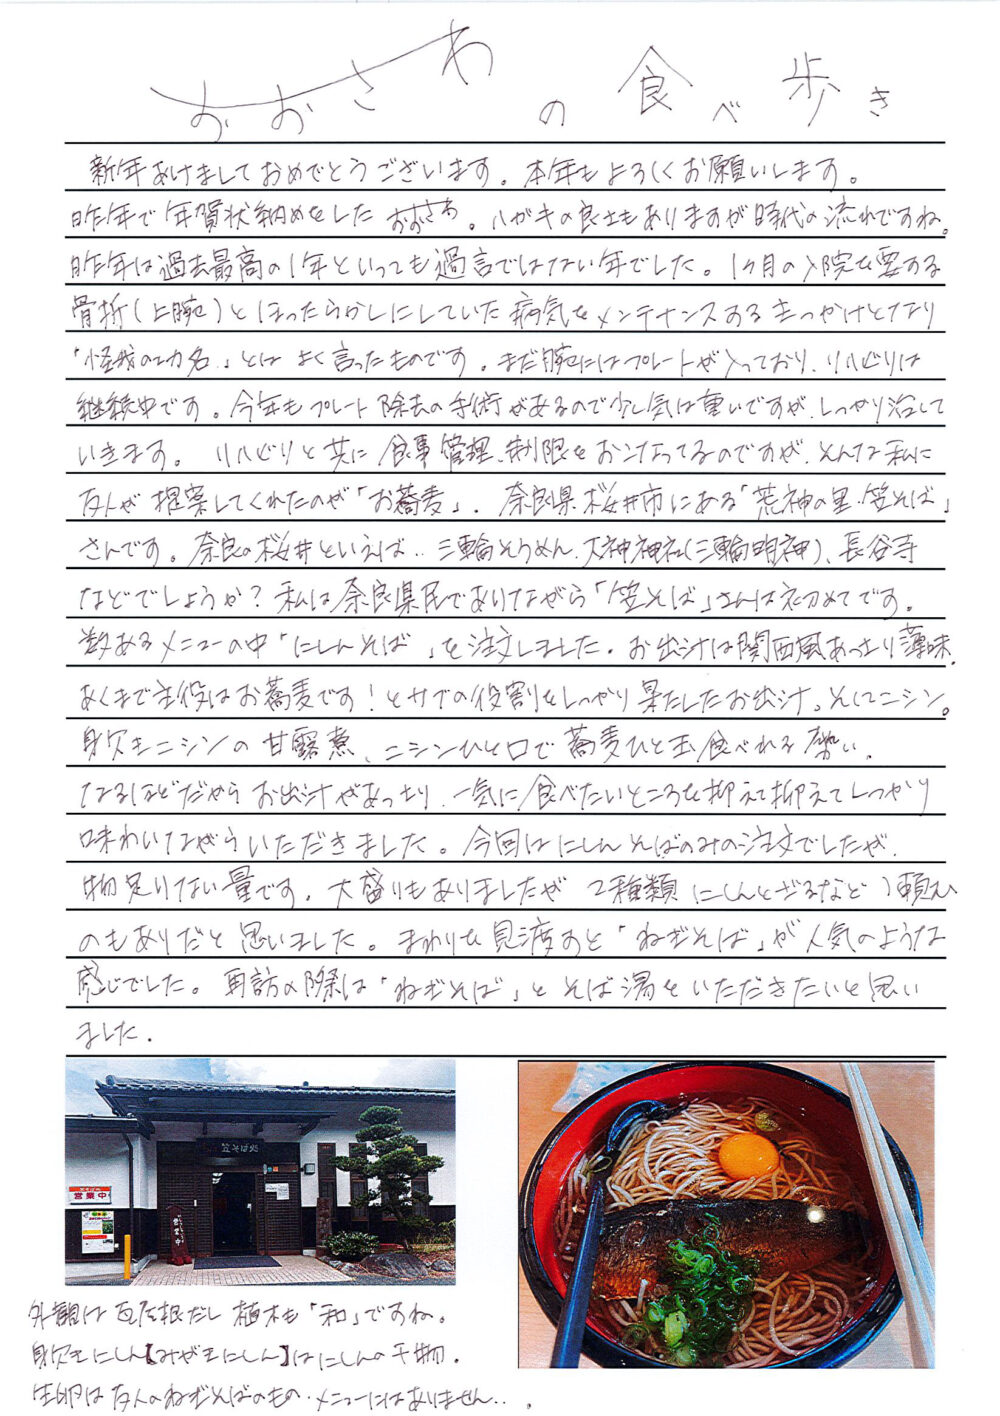 おおさわの食べ歩き
新年あけましておめでとうございます。本年もよろしくお願いします。
昨年で年賀状納めをしたおおさわ。ハガキの良さもありますが時代の流れですね。
昨年は過去最高の1年といっても過言ではない年でした。1ヶ月の入院を要する
骨折(上腕)とほったらかしにしていた病気をメンテナンスするきっかけとなり
「怪我の功名」とはよく言ったものです。まだ腕にはプレートが入っており、リハビリは
継続中です。今年もプレート除去の手術があるので少し気は重いですが、しっかり治して
いきます。リハビリと共に食事管理、制限をおこなってるのですが、そんな私に
友人が提案してくれたのが「お蕎麦」。奈良県桜井市にある「荒神の里・笠そば」
さんです。奈良の桜井といえば‥三輪そうめん、大神神社(三輪明神)、長谷寺
などでしょうか?私は奈良県民でありながら「笠そば」さんは初めてです。
数あるメニューの中「にしんそば」を注文しました。お出汁は関西風あっさり薄味。
あくまで主役はお蕎麦です!とサブの役割をしっかり果たしたお出汁。そしてニシン。
身欠きニシンの甘露煮、ニシンひと口で蕎麦ひと玉食べれる勢い。
なるほどだからお出汁があっさり、一気に食べたいところを抑えて抑えてしっかり
味わいながらいただきました。今回はにしんそばのみの注文でしたが、
物足りない量です。大盛りもありましたが2種類にしんとざるなど頼む
のもありだと思いました。まわりを見渡すと「ねぎそば」が人気のような
感じでした。再訪の際は「ねぎそば」とそば湯をいただきたいと思い
ました。
笠そば処
営業中
営業中
外観は瓦屋根だし植木も「和」ですね。
身欠きにしん【みがきにしん】はにしんの干物。
生卵は友人のねぎそばのもの・メニューにはありません‥。